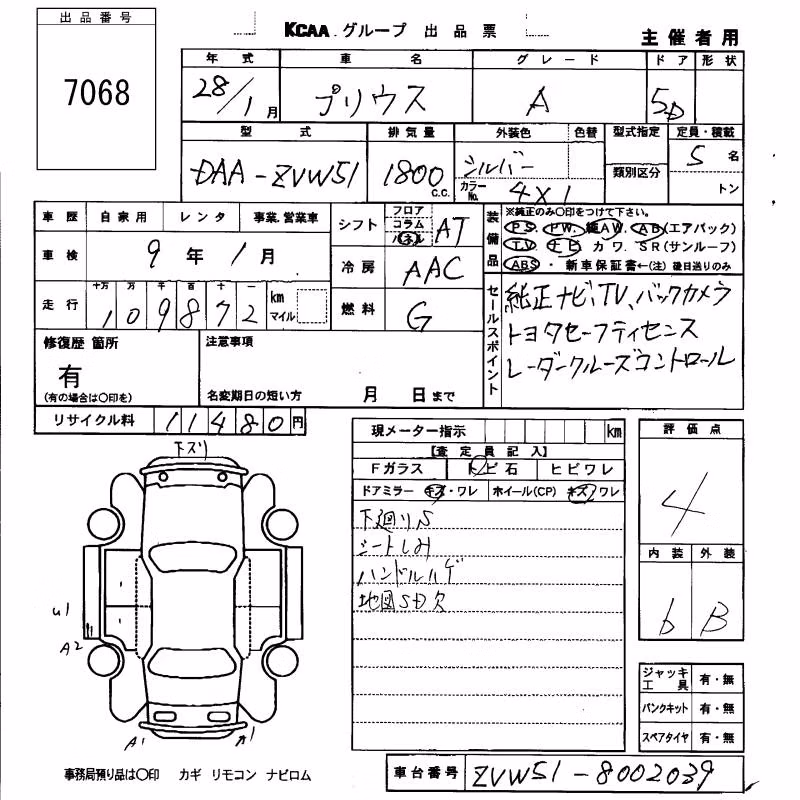 出品番号
7068
KCAA グループ 出品票
主催者用
年式 車名 グレード ドア 形状
28/1月 プリウス A 5D
型式 排気量 外装色 色替 型式指定 定員・積載
DAA-ZVW51 1800 c.c. シルバー 5名
カラーNo. 4X1 類別区分 トン
車歴 自家用 レンタ 事業.営業車
車検 9年1月
走行 十万 万 千 百 十 一 km マイル
109872
シフト フロア コラム パネル AT
冷房 AAC
燃料 G
装備品
※純正のみ○印をつけて下さい。
PS. PW. 純AW. AB(エアバック)
TV. ナビ カワ. SR(サンルーフ)
ABS ・ 新車保証書←(注)後日送りのみ
セールスポイント
純正ナビ、TV、バックカメラ
トヨタセーフティセンス
レーダークルーズコントロール
修復歴 箇所
有
(有の場合は○印を)
注意事項
名変期日の短い方 月 日まで
リサイクル料 11480円
下ズリ
u1
A2
A1 A1
事務局預り品は○印 カギ リモコン ナビロム
現メーター指示 km
【査定員記入】
Fガラス トビ石 ヒビワレ
ドアミラー キズ・ワレ ホイール(CP) キズ ワレ
下廻りS
シートしみ
ハンドルハゲ
地図SD欠
評価点
4
内装 外装
b B
ジャッキ工具 有・無
パンクキット 有・無
スペアタイヤ 有・無
車台番号 ZVW51-8002039